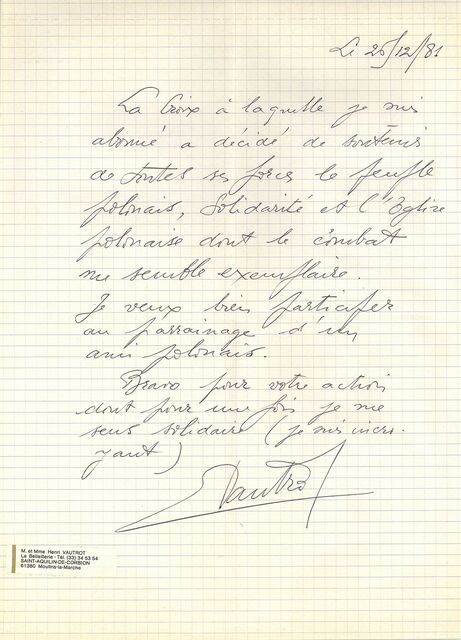 Le 26/12/81
La Croix à laquelle je suis
abonné a décidé de soutenir
de toutes ses forces le peuple
polonais, Solidarité et l'Eglise
polonaise dont le combat
me semble exemplaire.
Je veux bien participer
au parrainage d'un
ami polonais.
Bravo pour votre action
dont pour une fois je me
sens solidaire (je suis incro-
yant)
Vautrot
M. et Mme Henri VAUTROT
La Bellaillerie - Tél. (33) 34 53 54
SAINT-AQUILIN-DE-CORBION
61380 Moulins-la-Marche